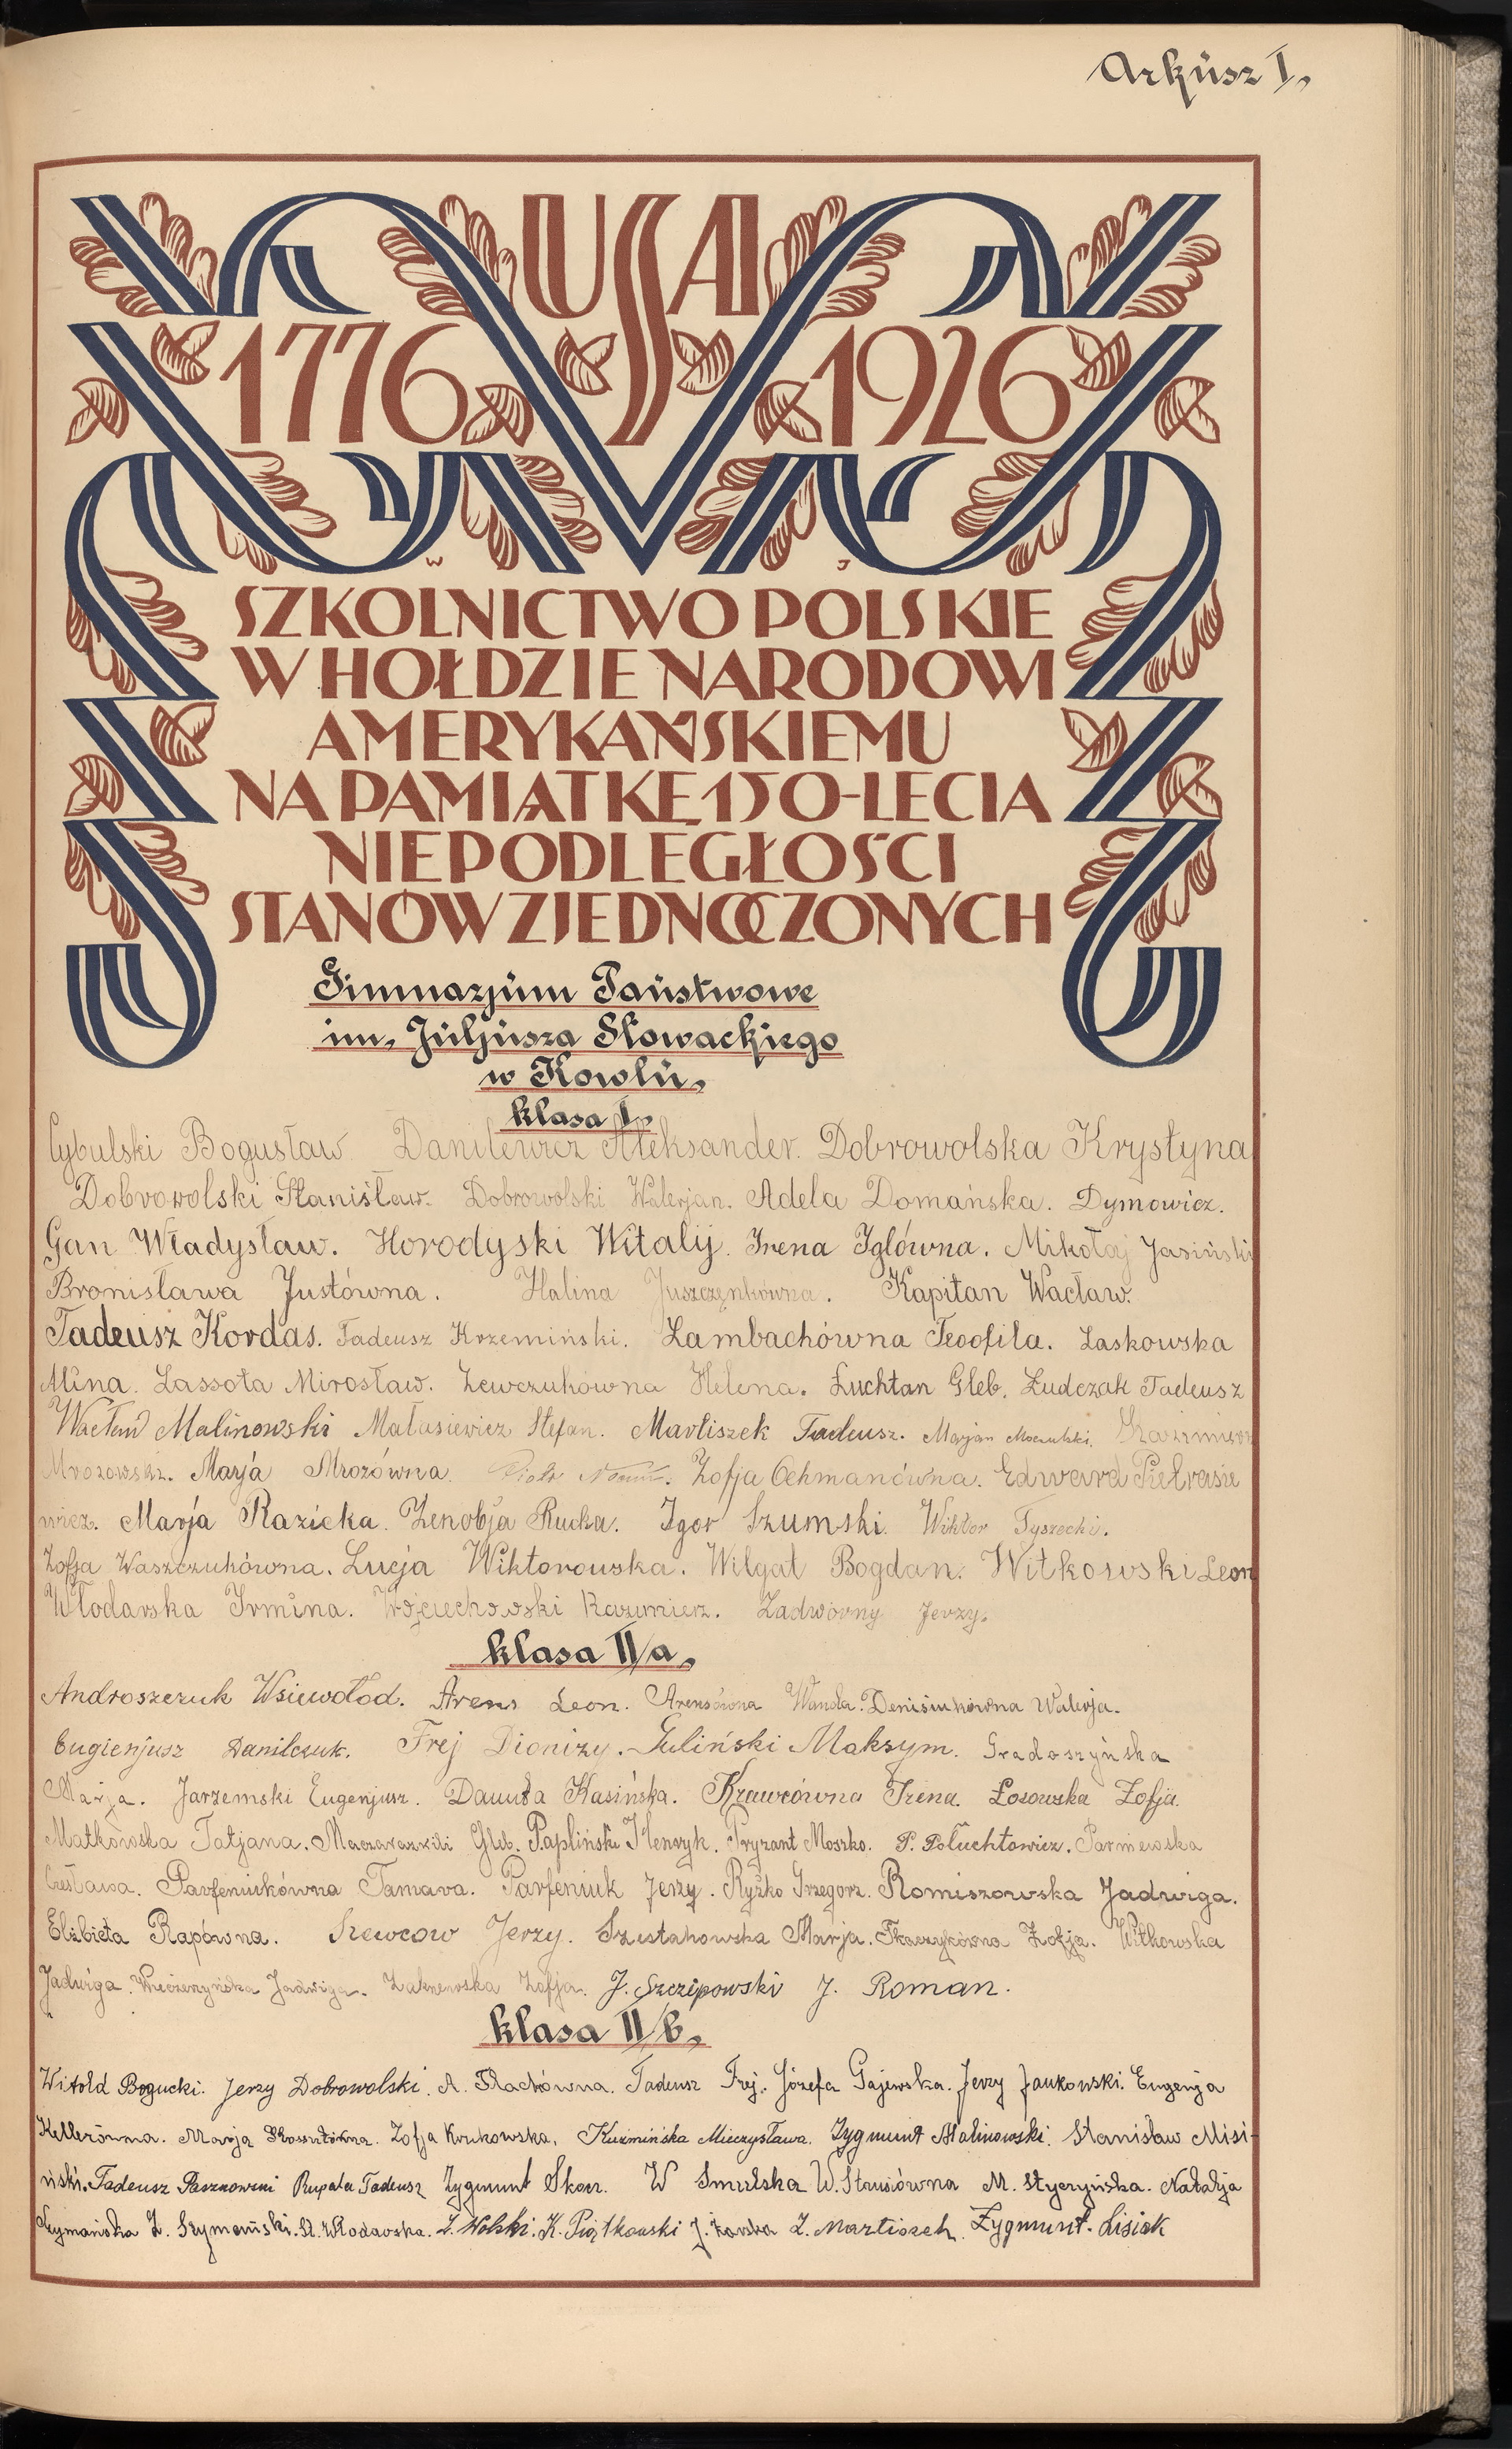 Arkusz I.
USA
1776 1926
W J
SZKOLNICTWO POLSKIE
W HOŁDZIE NARODOWI
AMERYKAŃSKIEMU
NA PAMIĄTKĘ 150-LECIA
NIEPODLEGŁOŚCI
STANÓW ZJEDNOCZONYCH
Gimnazjum Państwowe
im. Juljusza Słowackiego
w Kowlu.
klasa I.
Cybulski Bogusław Danilewicz Aleksander. Dobrowolska Krystyna
Dobrowolski Stanisław. Dobrowolski Walerjan. Adela Domańska. Dymowicz.
Gan Władysław. Horodyski Witalij. Irena Iglówna. Mikołaj Jasiński
Bronisława Justówna. Halina Juszczynkówna. Kapitan Wacław.
Tadeusz Kordas. Tadeusz Krzemiński. Lambachówna Teofila. Laskowska
Alina. Lassota Mirosław. Lewczukówna Helena. Łuchtan Gleb. Łudczak Tadeusz
Wacław Malinowski Matasiewicz Stefan. Martiszek Tadeusz. Marjan Moczulski. Kazimierz
Mrozowski. Marja Mrozówna. Piotr Zofja Ochmanówna. Edward Pietrasie
wicz. Marja Razicka. Zenobja Rucka. Igor Szumski. Wiktor Tyszecki.
Zofja Waszczukówna. Łucja Wiktorowska. Wilgat Bogdan. Witkowski Leon
Włodarska Irmina. Wojciechowski Kazimierz. Zadworny Jerzy.
klasa II/a.
Androszczuk Wsiewołod. Arens Leon. Arensówna Wanda. Denisiukówna Walerja.
Eugienjusz Danilczuk. Frej Dionizy. Guliński Maksym. Gradoszyńska
Marja. Jarzemski Eugenjusz. Danuta Kasińska. Krawcówna Irena. Łosowska Zofja.
Matkowska Tatjana. Gleb. Papliński Henryk. Pryzant Moszko. P. Połuchtowicz. Parniewska
Czesława. Parfeniukówna Tamara. Parfeniuk Jerzy. Ryżko Grzegorz. Romiszowska Jadwiga.
Elżbieta Rapówna. Szewcow Jerzy. Szestakowska Marja. Tkaczykówna Zofja. Witkowska
Jadwiga. Jadwiga. Zakrzewska Zofja. J. Szczipowski J. Roman.
klasa II/b.
Witold Bogucki. Jerzy Dobrowolski. A. Flachówna. Tadeusz Frej. Józefa Gajewska. Jerzy Jankowski. Eugenja
Kellerówna. Marja Kossutówna. Zofja Krukowska. Kuźmińska Mieczysława. Zygmunt Malinowski. Stanisław Misi-
ński. Tadeusz Pasznowski Rupala Tadeusz Zygmunt Skorr. W Smulska W. Stasiówna M. Styczyńska. Natalja
Szymańska Z. Szymański. St. Włodarska. Z. Wolski. K. Piątkowski J. Żarska Z. Martiszek. Zygmunt Lisiak